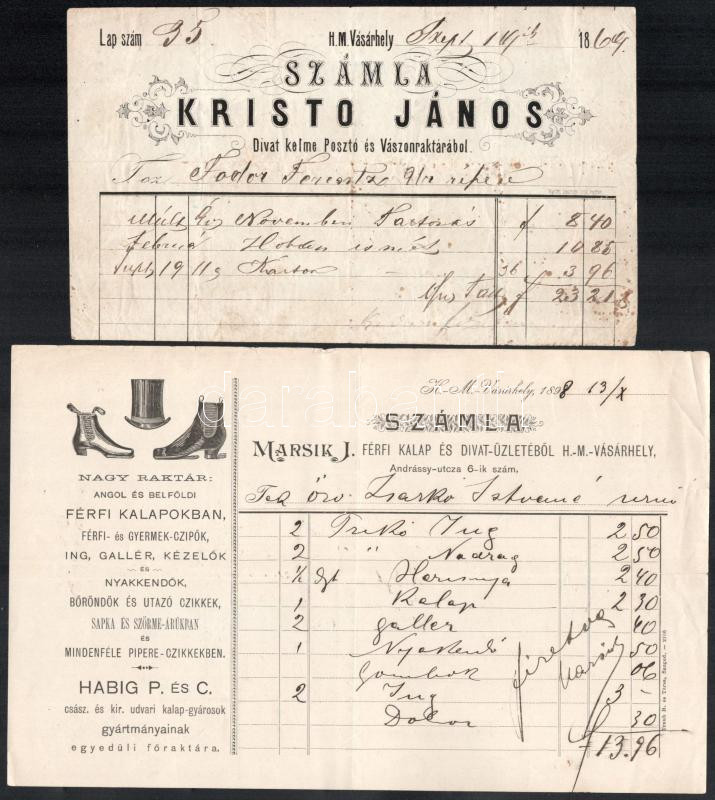 Lap szám 35. H.M. Vásárhely Szept 1869.
SZÁMLA
KRISTO JÁNOS
Divat kelme Posztó és Vászonraktárából.
Fodor Ferentz
Múlt Év November f 8 40
Február 10 85
Sept 19 11 Karton 36 3 96
f 23 21
H.-M.-Vásárhely, 1898 13/X
SZÁMLA
MARSIK J. FÉRFI KALAP ÉS DIVAT-ÜZLETÉBŐL H.-M.-VÁSÁRHELY,
Andrássy-utcza 6-ik szám.
István
2 Trikó Ing 2 50
2 " Nadrág 2 50
1/2 Harisnya 2 40
1 Kalap 2 30
2 galler 40
1 Nyakkendő 50
Gombok 06
2 Ing 3 –
Doboz 30
13.96
fizetve
Marsik
NAGY RAKTÁR:
ANGOL ÉS BELFÖLDI
FÉRFI KALAPOKBAN,
FÉRFI- ÉS GYERMEK-CZIPŐK,
ING, GALLÉR, KÉZELŐK
ÉS
NYAKKENDŐK,
BŐRÖNDÖK ÉS UTAZÓ CZIKKEK,
SAPKA ÉS SZŐRME-ÁRUKBAN
ÉS
MINDENFÉLE PIPERE-CZIKKEKBEN.
HABIG P. ÉS C.
csász. és kir. udvari kalap-gyárosok
gyártmányainak
egyedüli főraktára.